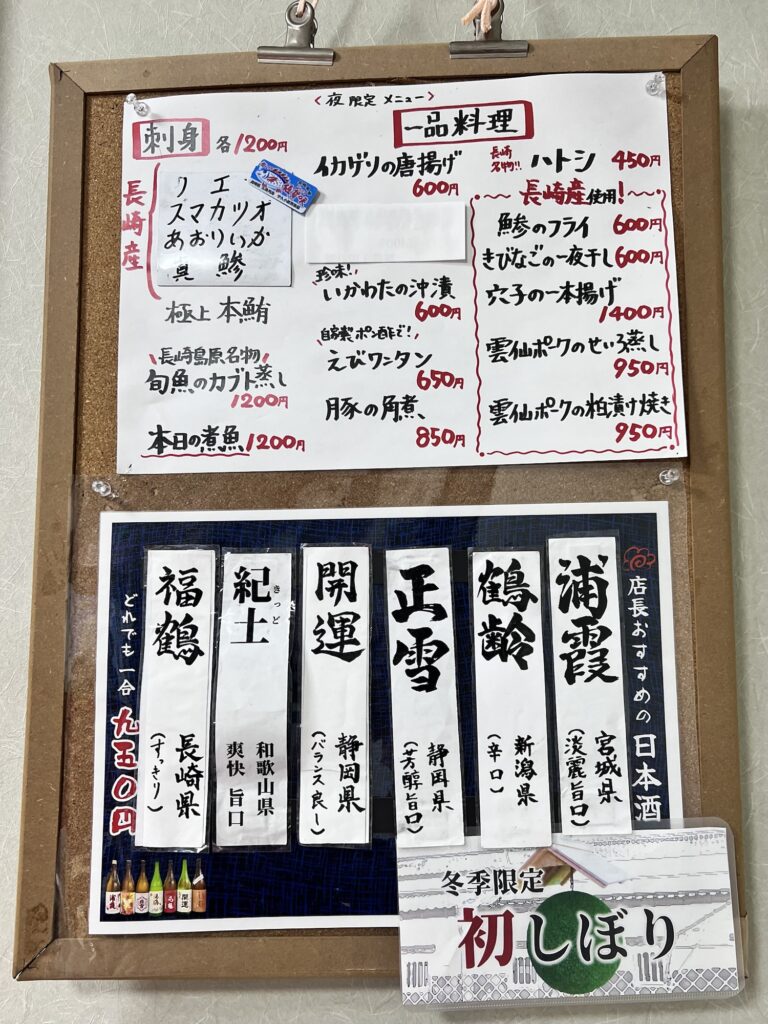 〈夜限定メニュー〉
刺身 各1200円
長崎産
クエ
スマカツオ
あおりいか
真鯵
極上 本鮪
長崎島原名物
旬魚のカブト蒸し
1200円
本日の煮魚 1200円
一品料理
イカゲソの唐揚げ
600円
珍味!
いかわたの沖漬
600円
自家製ポン酢で!
えびワンタン
650円
豚の角煮
850円
長崎名物!! ハトシ 450円
長崎産使用!
鯵のフライ 600円
きびなごの一夜干し 600円
穴子の一本揚げ
1400円
雲仙ポークのせいろ蒸し
950円
雲仙ポークの粕漬け焼き
950円
店長おすすめの日本酒
浦霞 宮城県
(淡麗旨口)
鶴齢 新潟県
(辛口)
正雪 静岡県
(芳醇旨口)
開運 静岡県
(バランス良し)
紀土 きっど 和歌山県
爽快 旨口
福鶴 長崎県
(すっきり)
どれでも一合 九五〇円
冬季限定
初しぼり